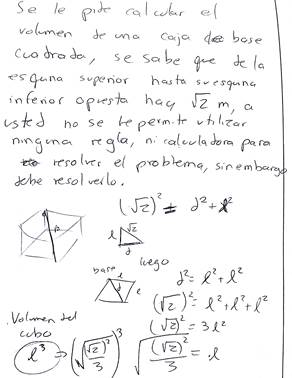 Se le pide calcular el
volumen de una caja de base
cuadrada, se sabe que de la
esquina superior hasta su esquina
inferior opuesta hay √2 m, a
usted no se le permite utilizar
ninguna regla, ni calculadora para
resolver el problema, sin embargo
debe resolverlo.
(√2)² = d² + l²
√2
l √2
d
luego
base l
d l
d² = l² + l²
(√2)² = l² + l² + l²
(√2)² = 3l²
√((√2)²/3) = l
.Volumen del
cubo
l³ ⇒ (√((√2)²/3))³